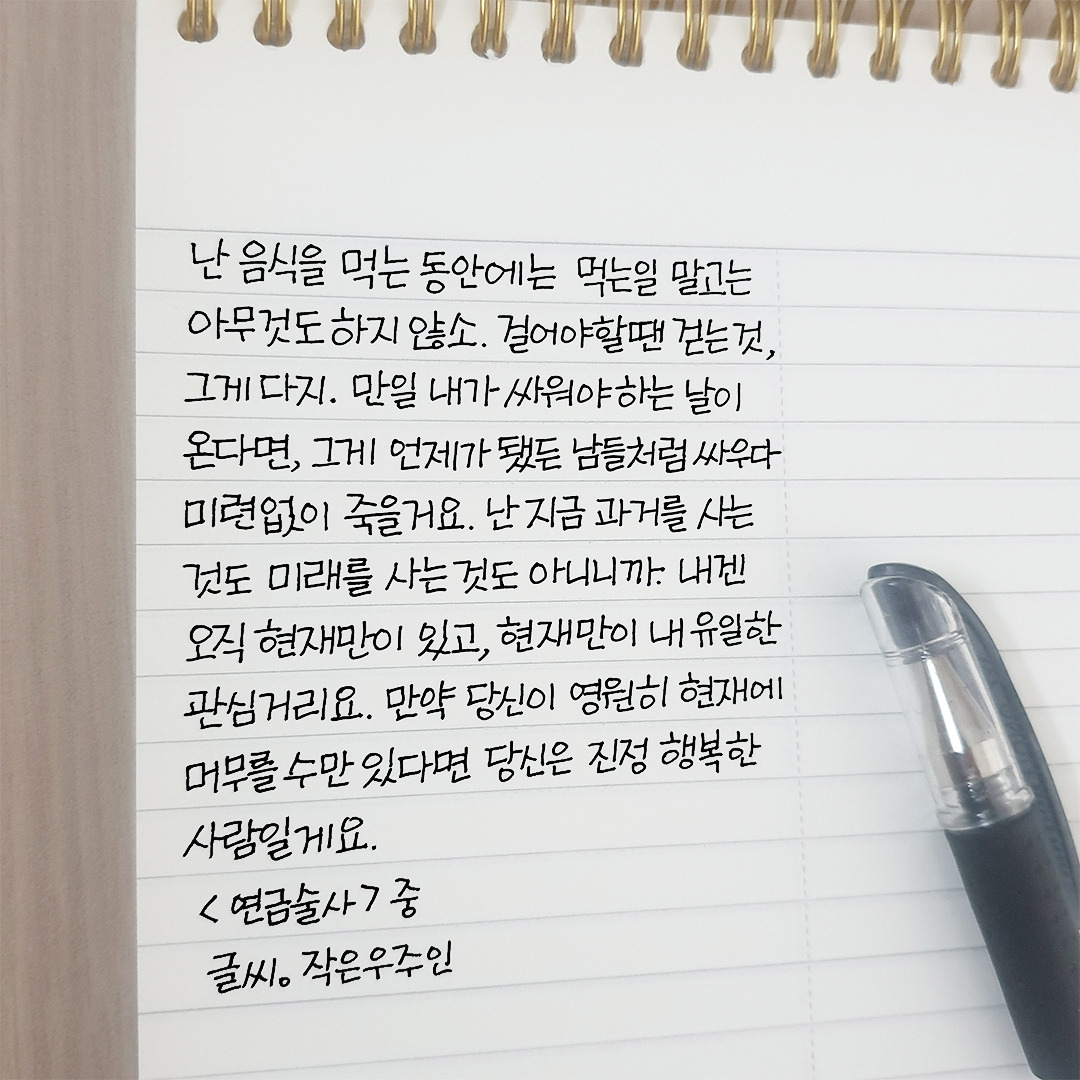 난 음식을 먹는 동안에는 먹는일 말고는
아무것도 하지 않소. 걸어야할땐 걷는것,
그게 다지. 만일 내가 싸워야 하는 날이
온다면, 그게 언제가 됐든 남들처럼 싸우다
미련없이 죽을거요. 난 지금 과거를 사는
것도 미래를 사는것도 아니니까. 내겐
오직 현재만이 있고, 현재만이 내 유일한
관심거리요. 만약 당신이 영원히 현재에
머무를 수만 있다면 당신은 진정 행복한
사람일게요.
<연금술사> 중
글씨。작은우주인